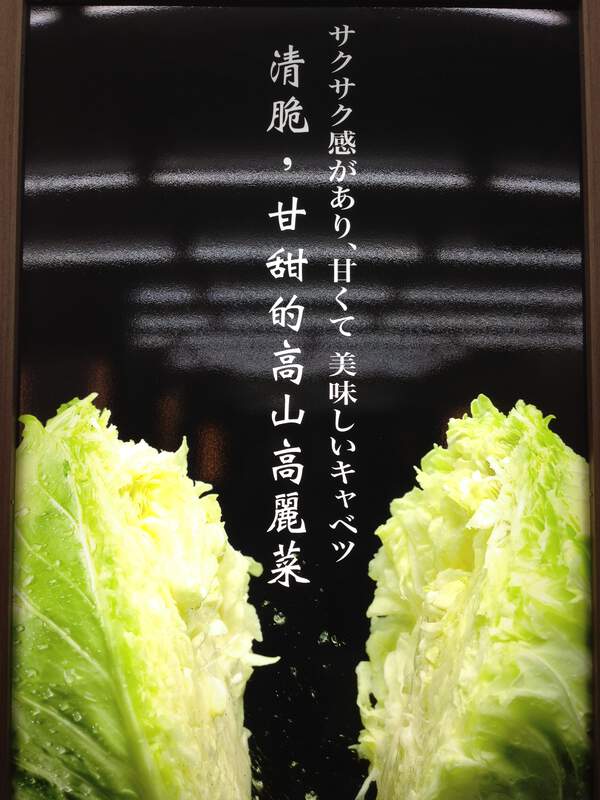 サクサク感があり、甘くて 美味しいキャベツ
清脆，甘甜的高山高麗菜